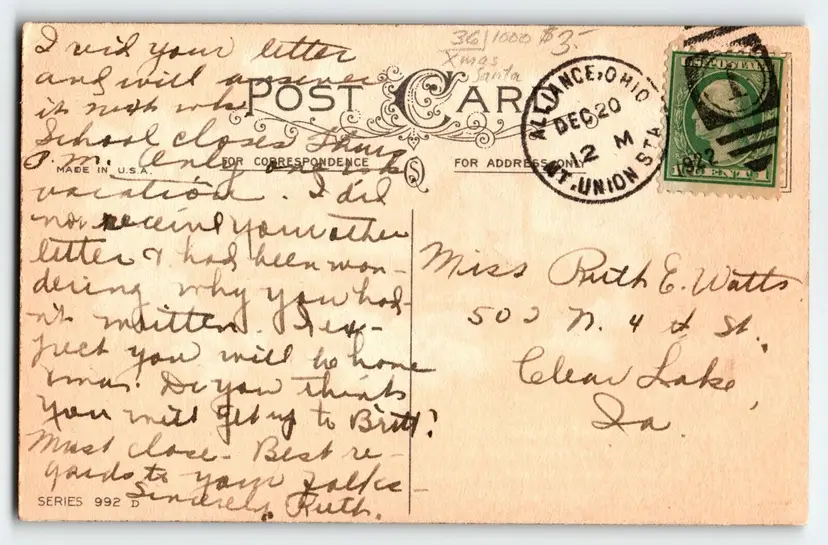 I rec'd your letter
and will answer
it next wk.
School closes Thurs
P.M. Only one wk
vacation. I did
not receive your other
letter & had been won-
dering why you had-
n't written. I ex-
pect you will be home
Xmas. Do you think
you will get up to Britt?
Must close - Best re-
gards to your folks -
Sincerely, Ruth.
36/1000 $3-
Xmas
Santa
POST CARD
MADE IN U.S.A.
FOR CORRESPONDENCE
FOR ADDRESS ONLY
ALLIANCE, OHIO
DEC 20
12 M
1922
MT. UNION STA.
Miss Ruth E. Watts
502 N. 4th St.
Clear Lake,
Ia.
SERIES 992 D